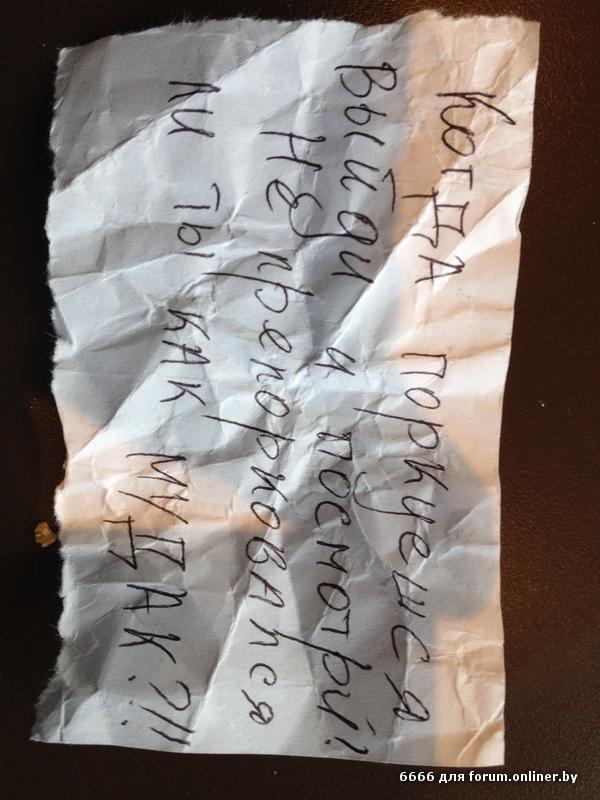 КОГДА ПОРКУЕШСЯ
ВЫЙДИ И ПОСМОТРИ!
НЕ ПРЕПОРКОВАЛСЯ
ЛИ ТЫ КАК МУДАК?!!
6666 для forum.onliner.by